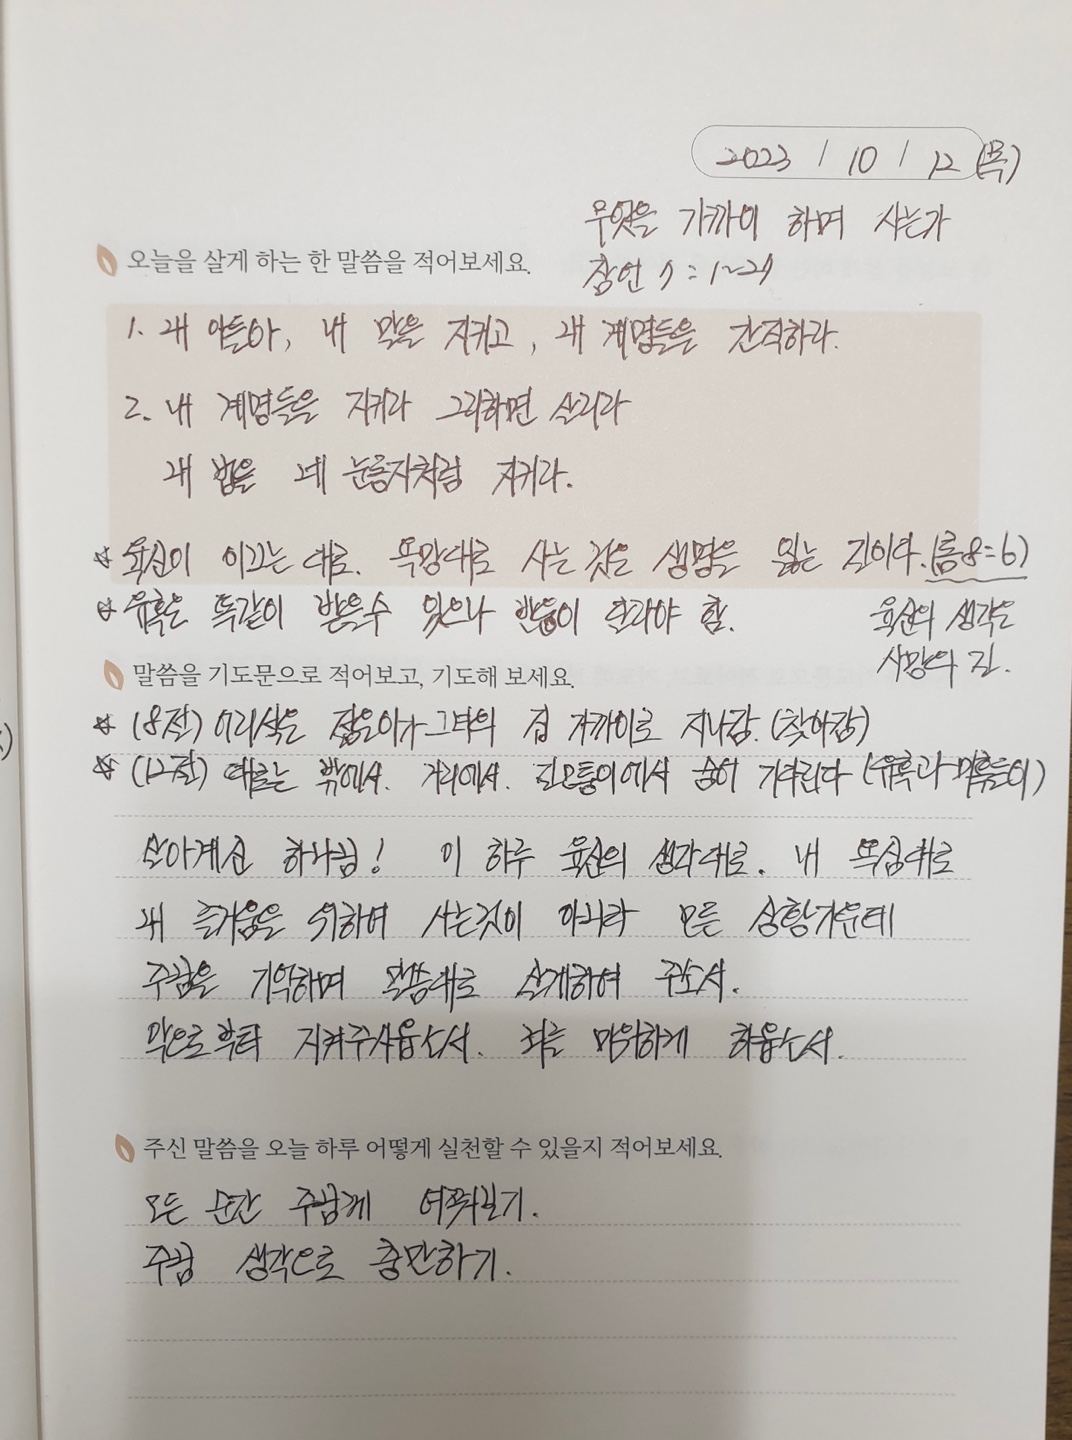 2023 / 10 / 12 (목)
무엇을 가까이 하며 사는가
오늘을 살게 하는 한 말씀을 적어보세요.
잠언 7:1~27
1. 내 아들아, 내 말을 지키고, 내 계명들을 간직하라.
2. 내 계명들을 지키라 그리하면 살리라
내 법을 네 눈동자처럼 지키라.
☆ 육신이 이끄는 대로. 욕망대로 사는 것은 생명을 잃는 길이다. (롬8:6)
☆ 유혹은 똑같이 받을수 있으나 반응이 달라야 함.
육신의 생각은
사망의 길.
말씀을 기도문으로 적어보고, 기도해 보세요.
☆ (8절) 어리석은 젊은이가 그녀의 집 가까이로 지나감. (찾아감)
☆ (12절) 때로는 밖에서. 거리에서. 길모퉁이에서 숨어 기다린다 (유혹과 미혹들이)
살아계신 하나님! 이 하루 육신의 생각대로. 내 욕심대로
내 즐거움을 위하여 사는것이 아니라 모든 상황가운데
주님을 기억하며 말씀대로 살게하여 주소서.
악으로부터 지켜주시옵소서. 죄를 미워하게 하옵소서.
주신 말씀을 오늘 하루 어떻게 실천할 수 있을지 적어보세요.
모든 순간 주님께 여쭤보기.
주님 생각으로 충만하기.